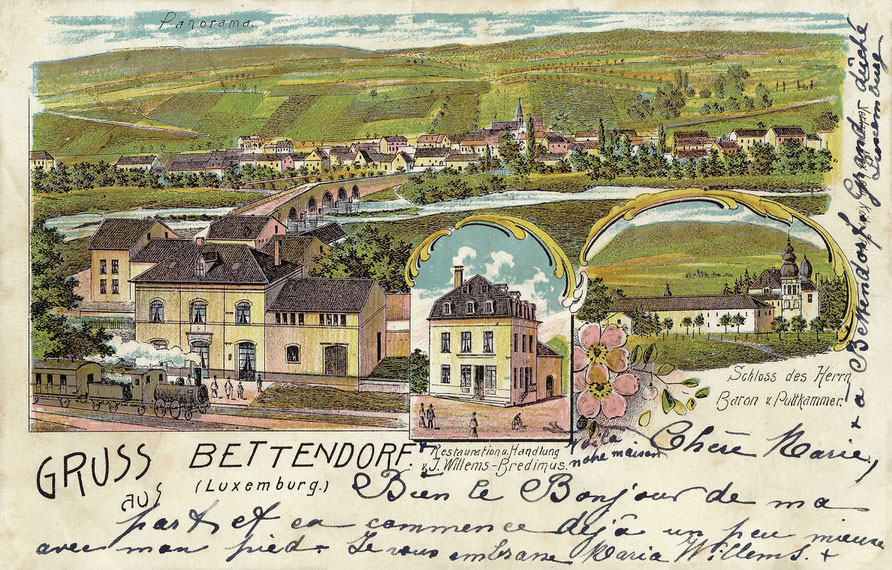 Panorama.
Schloss des Herrn
Baron v. Puttkammer.
GRUSS
aus
BETTENDORF.
(Luxemburg.)
Restauration u. Handlung
v. J. Willems-Bredimus.
Voila
notre maison
Chère Marie,
Bien le Bonjour de ma
part et ca commence déjà un peu mieuse
avec mon pied. Je vous embrasse Maria Willems. +
+ a Bettendorf Grand duché
Luxemburg